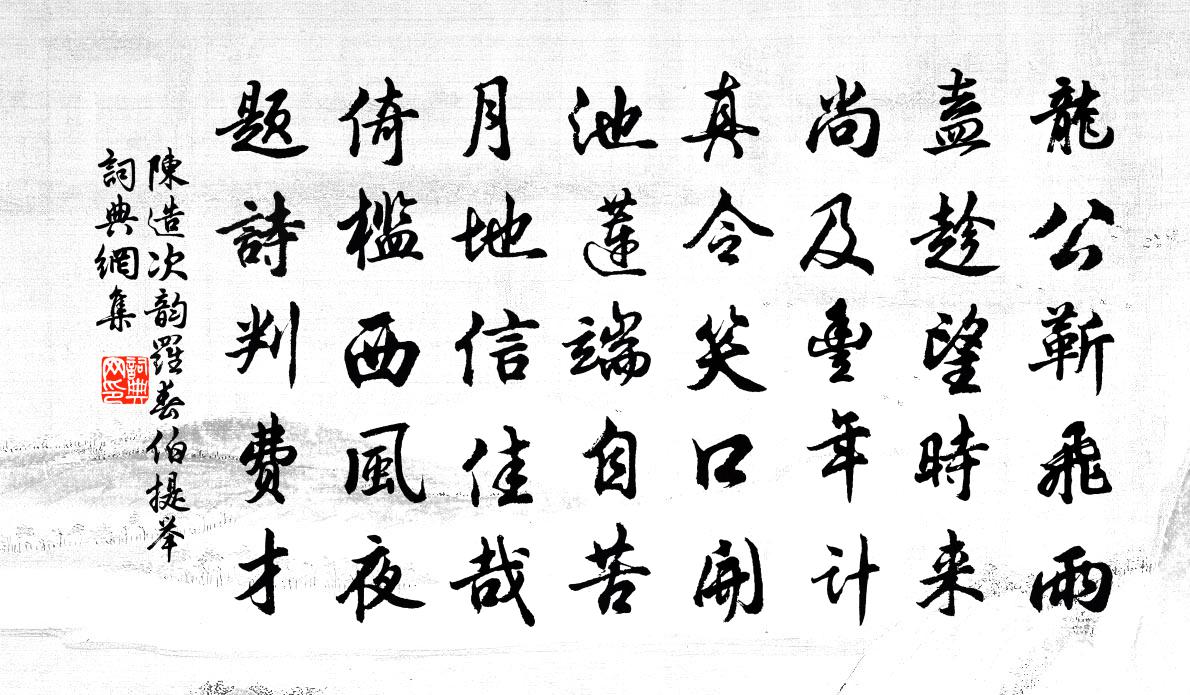 龍公靳飛雨
盍趁望時来
尚及豐年计
真令笑口開
池蓮端自苦
月地信佳哉
倚檻西風夜
題詩判費才
陳造次韵羅春伯提举
詞典網集
詞典网印